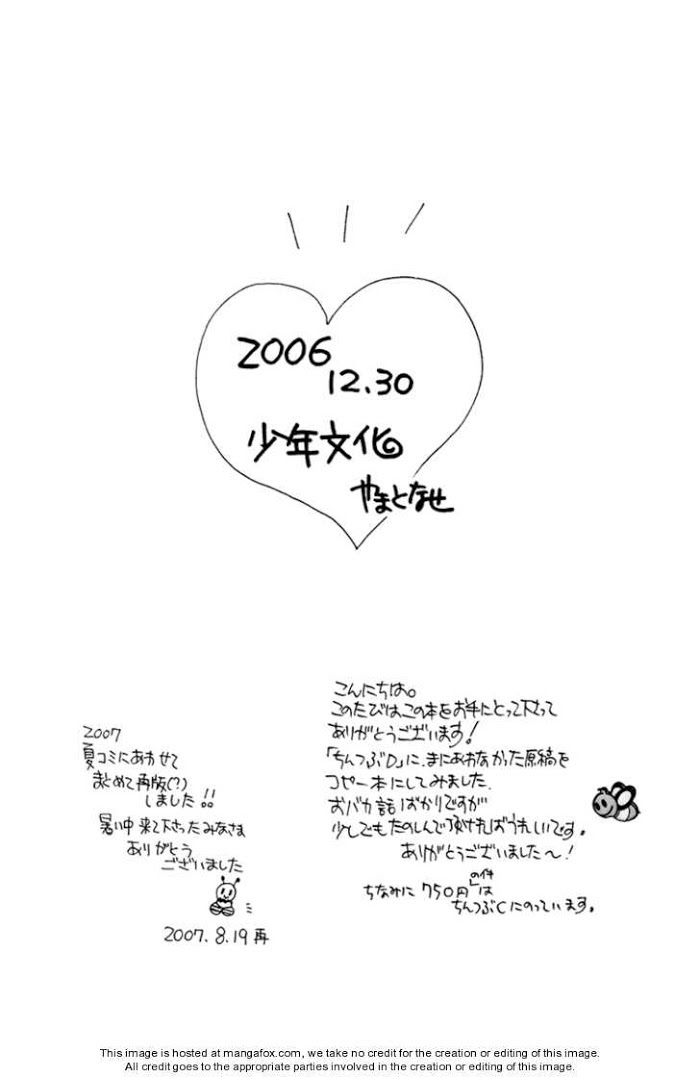 2006
12.30
少年文化
やまとなせ
こんにちは。
このたびはこの本をお手にとって下さって
ありがとうございます!
「ちんつぶD」に、まにあわなかった原稿を
コピー本にしてみました。
おバカ話ばかりですが
少しでもたのしんで頂ければうれしいです。
ありがとうございました〜!
ちなみに750円の件」は
ちんつぶCにのっています。
2007
夏コミにあわせて
まとめて再版(?)
しました!!
暑い中来て下さったみなさま
ありがとう
ございました
2007.8.19再
This image is hosted at mangafox.com, we take no credit for the creation or editing of this image.
All credit goes to the appropriate parties involved in the creation or editing of this image.